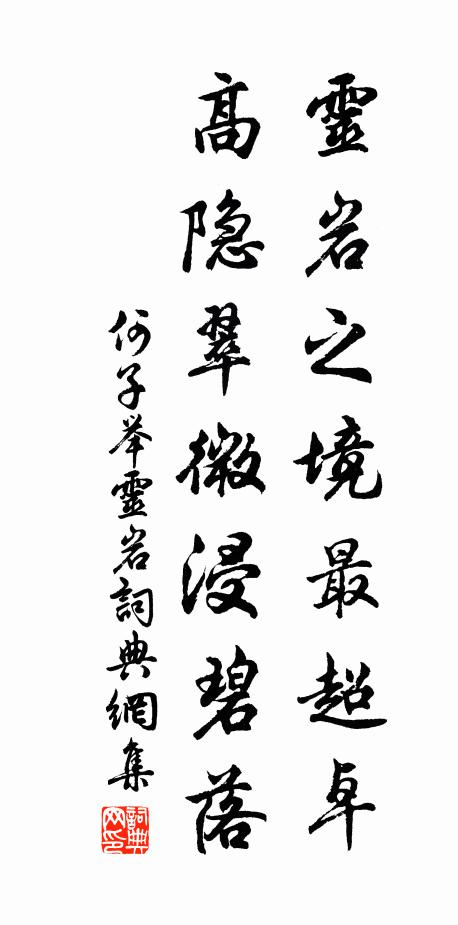 靈岩之境最超卓
高隐翠微浸碧落
何子举靈岩詞典網集
詞典网印